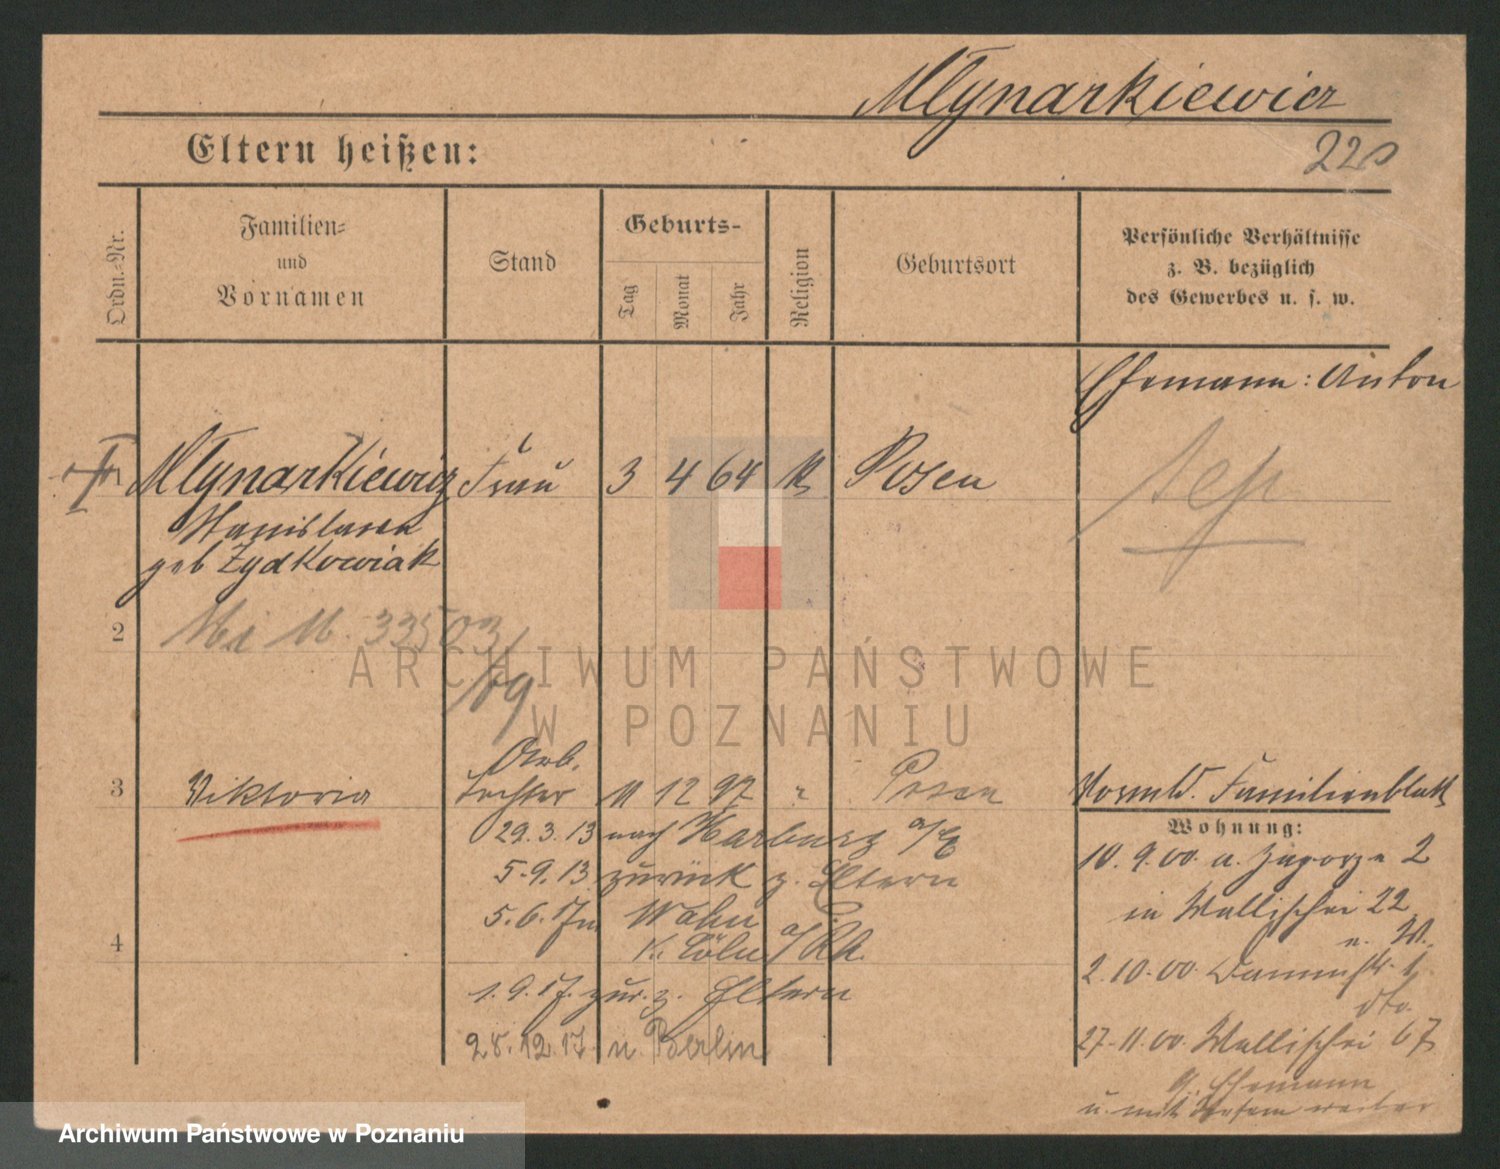 Młynarkiewicz
Eltern heißen:
Ordn.=Nr.
Familien=
und
Vornamen
Stand
Geburts-
Tag
Monat
Jahr
Religion
Geburtsort
Persönliche Verhältnisse
z. B. bezüglich
des Gewerbes u. s. w.
Ehemann: Anton
Młynarkiewicz Frau 3 4 64 K Posen
Stanislawa
geb Zydkowiak
sep
2
33503/19
ARCHIWUM PAŃSTWOWE
W POZNANIU
3 Viktoria Tochter 11 12 97 " Posen
29.3.13 nach Harburg a/E
5.9.13 zurück z. Eltern
5.6.17 n Wahn
4
K. Cöln a/Rh.
1.9.17. zur. z. Eltern
28.12.17 n. Berlin
Familienblatt
Wohnung:
10.9.00. a. Zagorze 2
in Wallischei 22
n. W.
2.10.00. Dammstr. 1
dto.
27.11.00. Wallischei 67
z. Ehemann
u. mit diesem weiter
Archiwum Państwowe w Poznaniu